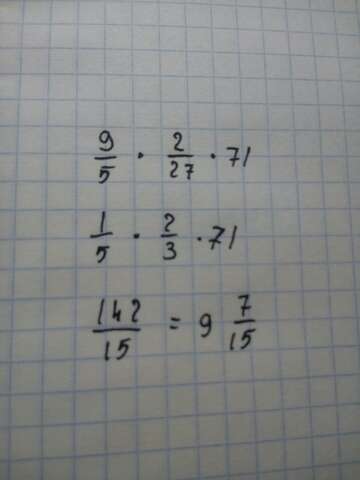 9/5 · 2/27 · 71
1/5 · 2/3 · 71
142/15 = 9 7/15